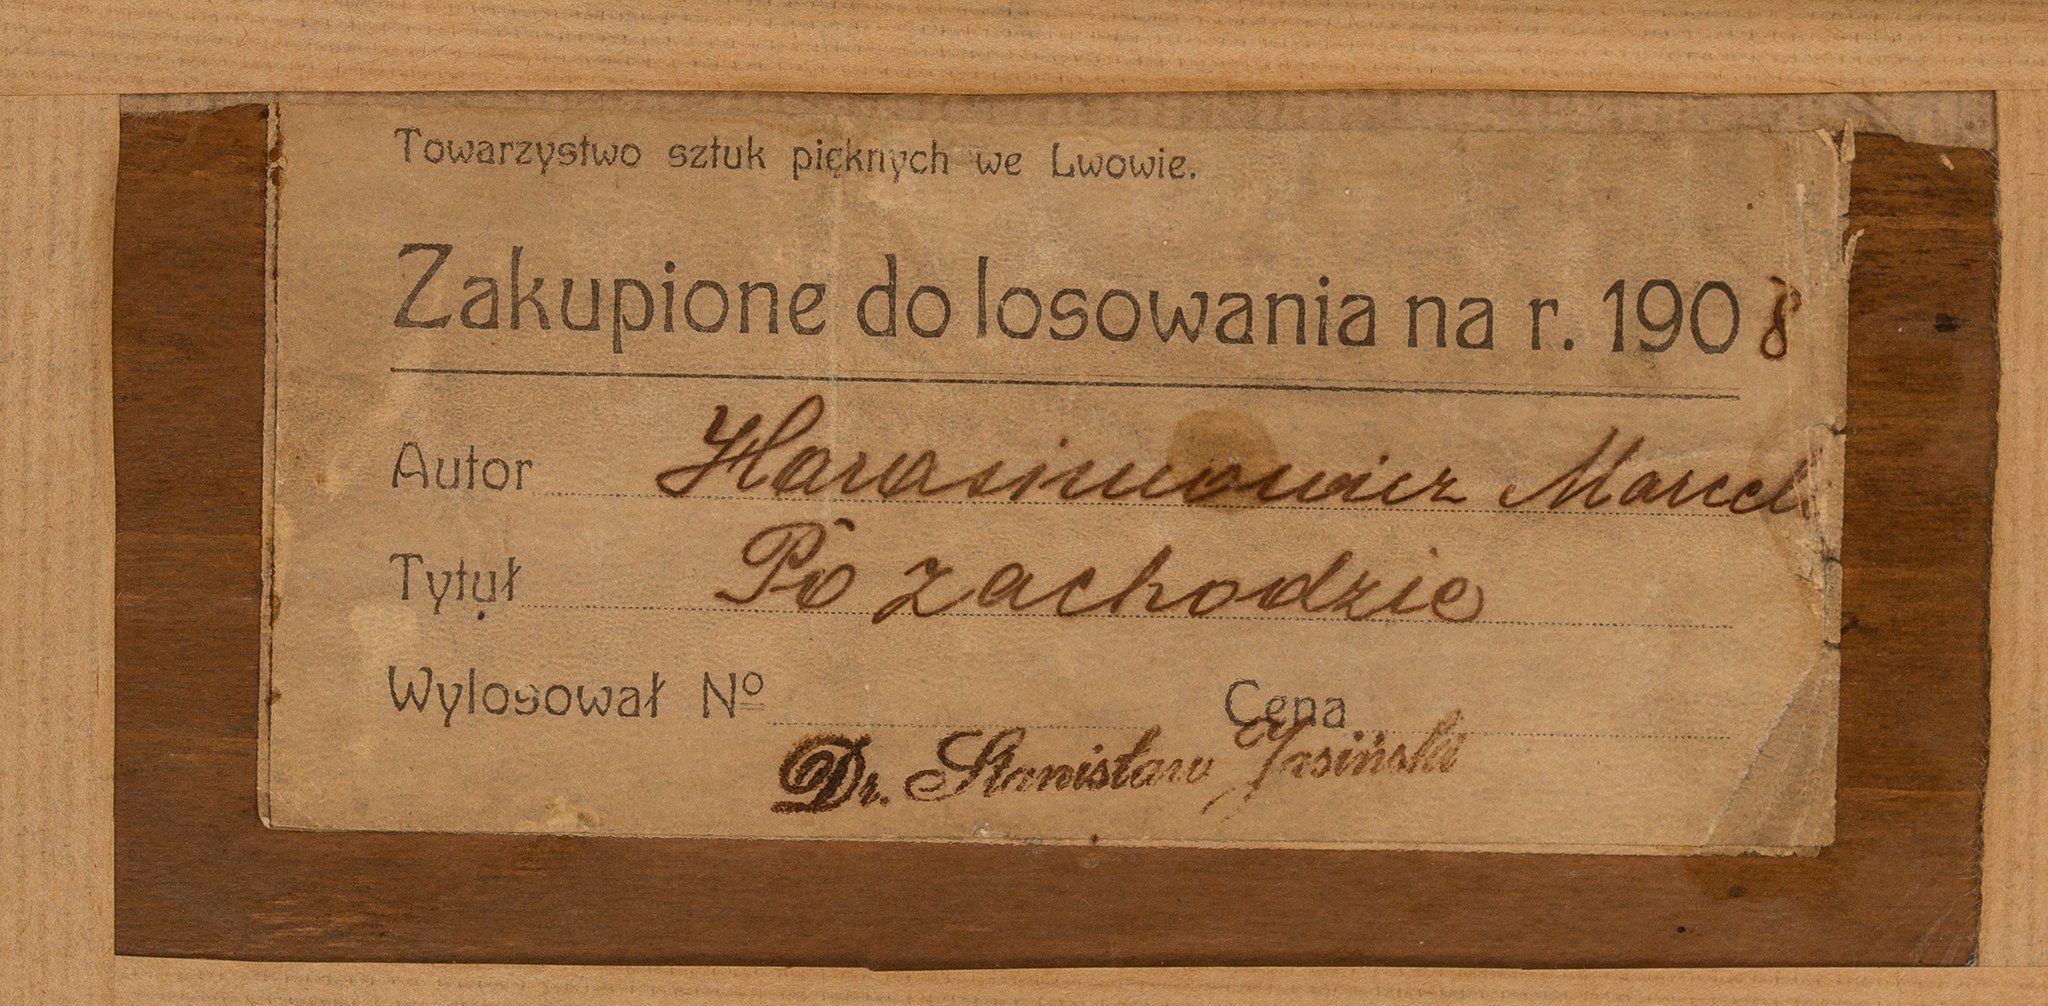 Towarzystwo sztuk pięknych we Lwowie.
Zakupione do losowania na r. 1908
Autor Harasimowicz Marceli
Tytuł Po zachodzie
Wylosował Nº Cena
Dr. Stanisław Jasiński